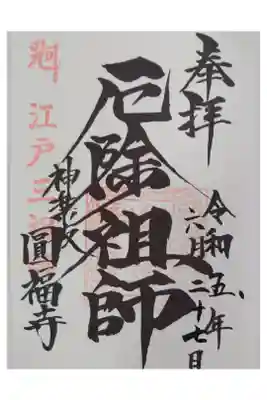 奉拝
令和五年
六月二十七日
厄除祖師
神楽坂
圓福寺
江戸三